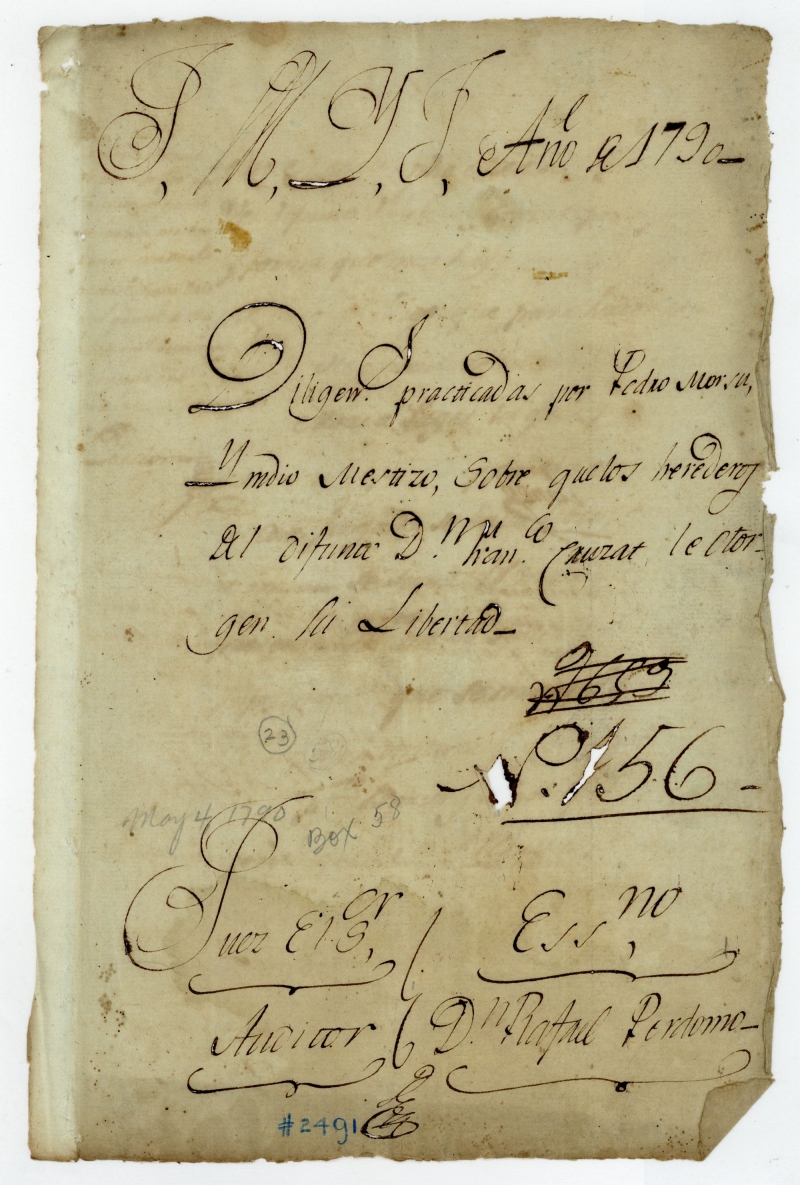 J, M, Y, J, Año de 1790
Diligens. practicadas por Pedro Morsu,
Yndio Mestizo, Sobre que los herederos
del difunto Dn. Franco. Cruzat, le otor-
gen su Libertad
No. 156
23
May 4, 1790
Box 58
Juez El Sor,
Auditor
Essno,
Dn. Rafael Perdomo
#2491